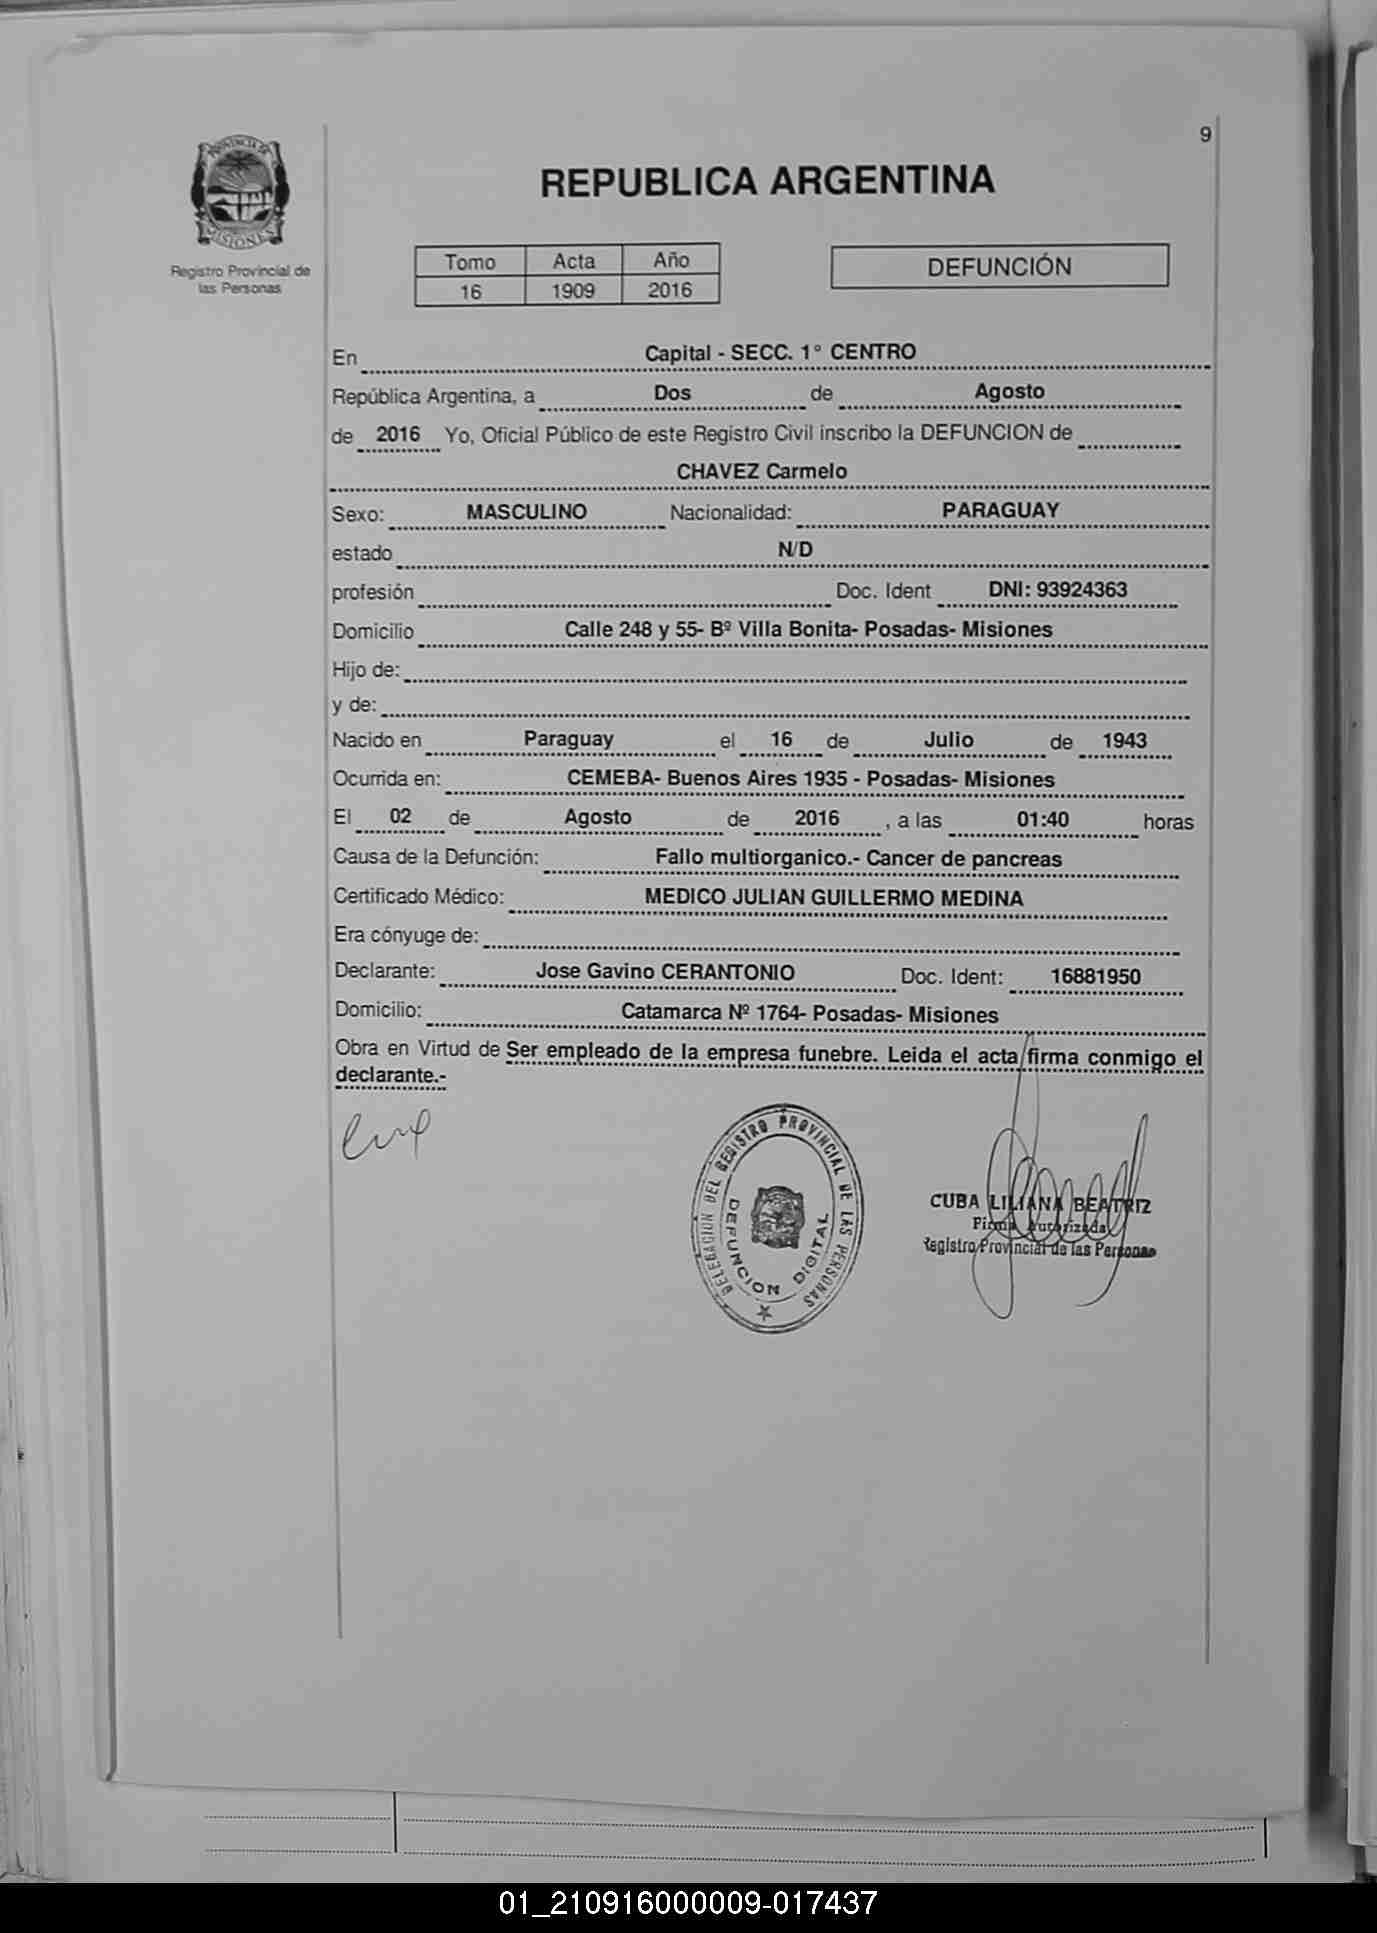 9
PROVINCIA DE
MISIONES
Registro Provincial de
las Personas
REPUBLICA ARGENTINA
Tomo Acta Año
16 1909 2016
DEFUNCIÓN
En Capital - SECC. 1° CENTRO
República Argentina, a Dos de Agosto
de 2016 Yo, Oficial Público de este Registro Civil inscribo la DEFUNCION de
CHAVEZ Carmelo
Sexo: MASCULINO Nacionalidad: PARAGUAY
estado N/D
profesión Doc. Ident DNI: 93924363
Domicilio Calle 248 y 55- Bº Villa Bonita- Posadas- Misiones
Hijo de:
y de:
Nacido en Paraguay el 16 de Julio de 1943
Ocurrida en: CEMEBA- Buenos Aires 1935 - Posadas- Misiones
El 02 de Agosto de 2016 , a las 01:40 horas
Causa de la Defunción: Fallo multiorganico.- Cancer de pancreas
Certificado Médico: MEDICO JULIAN GUILLERMO MEDINA
Era cónyuge de:
Declarante: Jose Gavino CERANTONIO Doc. Ident: 16881950
Domicilio: Catamarca Nº 1764- Posadas- Misiones
Obra en Virtud de Ser empleado de la empresa funebre. Leida el acta firma conmigo el
declarante.-
DELEGACION DEL REGISTRO PROVINCIAL DE LAS PERSONAS
DEFUNCION DIGITAL
CUBA LILIANA BEATRIZ
Firma Autorizada
Registro Provincial de las Personas
01_210916000009-017437